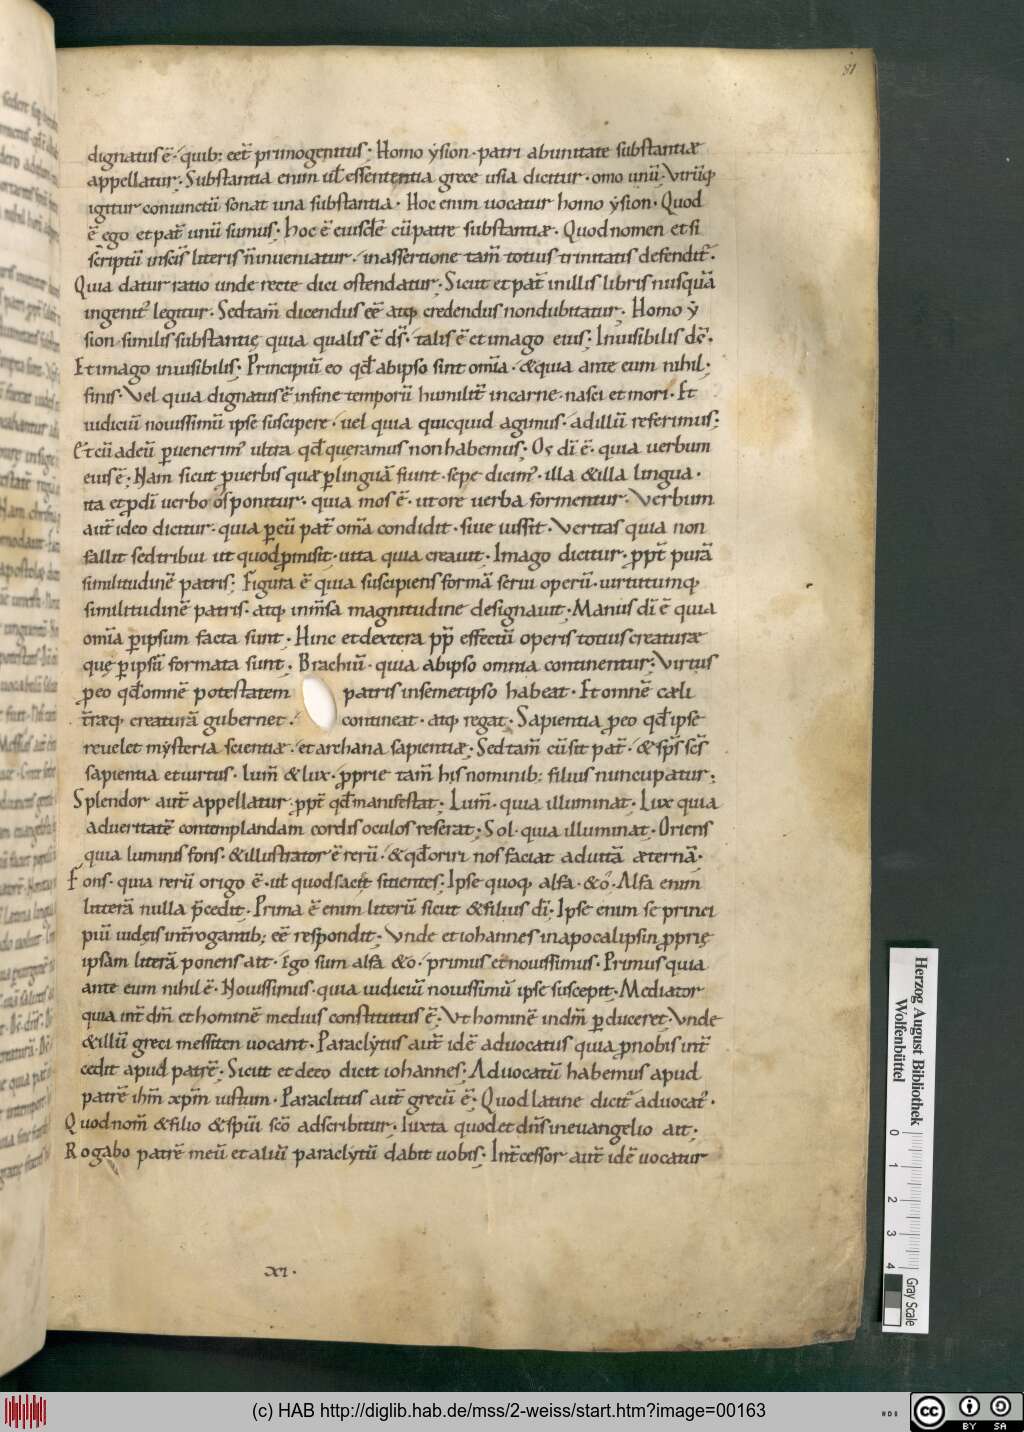 81
dignatus ē· quib: eēt primogenitus; Homo ẏsion· patri ab unitate substantiæ
appellatur; Substantia enim ul̄ essententia grece usia dicitur· omo unū· Vtrūq;
igitur coniunctū sonat una substantia· Hoc enim uocatur homo ẏsion· Quod
ē ego et pat̄ unū sumus; hoc ē eiusdē cū patre substantiæ· Quod nomen et si
scriptū in scīs literis n̄ inueniatur· in assertione tam̄ totius trinitatis defendit̄·
Quia datur ratio unde recte dici ostendatur; Sicut et pat̄ in illis libris nusquā
ingenit' legitur· Sed tam̄ dicendus eē atq; credendus non dubitatur; Homo ẏ
sion· similis substantię quia qualis ē ds̄· talis ē et imago eius; Inuisibilis dē·
Et imago inuisibilis; Principiū eo qd̄ ab ipso sint om̄ia· & quia ante eum nihil·
finis· Vel quia dignatus ē in fine temporū humilit̄ in carne· nasci et mori· Et
iudiciū nouissimū ipse suscipere· uel quia quicquid agimus· ad illū referimus;
Et cū ad eū peruenerim' ultra qd̄ queramus non habemus; Os dī ē· quia uerbum
eius ē; Nam sicut p uerbis quæ p linguā fiunt· sepe dicim' · illa & illa lingua·
ita et p dī uerbo os ponitur· quia mos ē· ut ore uerba formentur· Verbum
aut̄ ideo dicitur· quia p eū pat̄ om̄ia condidit· siue iussit· Veritas quia non
fallit sed tribui ut quod pmisit· uita quia creauit· Imago dicitur· ppt̄ purā
similitudinē patris; Figura ē quia suscipiens formā serui operū· uirtutumq;
similitudinē patris· atq; in m̄sa magnitudine designauit· Manus dī ē quia
om̄ia p ipsum facta sunt· Hinc et dextera pp̄ effectū operis totius creaturæ
quę p ipsū formata sunt; Brachiū· quia ab ipso omnia continentur; Virtus
p eo qd̄ omnē potestatem patris in semetipso habeat· Et omnē cæli
t̄ræq; creaturā gubernet· contineat· atq; regat· Sapientia p eo qd̄ ipse
reuelet mẏsteria scientiæ· et archana sapientiæ; Sed tam̄ cū sit pat̄· & sps̄ scs̄
sapientia et uirtus· lum̄ & lux· pprie tam̄ his nominib: filius nuncupatur;
Splendor aut̄ appellatur ppt̄ qd̄ manifestat; Lum̄· quia illuminat; Lux quia
ad ueritatē contemplandam cordis oculos reserat; Sol· quia illuminat· Oriens
quia luminis fons· & illustrator ē rerū· & qd̄ oriri nos faciat ad uitā æternā·
Fons· quia rerū origo ē· ul̄ quod saciet sitientes; Ipse quoq; alfa· & o· Alfa enim
litterā nulla p̄cedit; Prima ē enim literū sicut & filius dī; Ipse enim se princi
piū iudęis int̄rogantib; eē respondit; Vnde et iohannes in apocalipsin pprię
ipsam literā ponens ait· Ego sum alfa & o· primus et nouissimus· Primus quia
ante eum nihil ē· Nouissimus· quia iudiciū nouissimū ipse suscepit; Mediator
quia int̄ dm̄ et hominē medius constitutus ē; Vt hominē in dm̄ pduceret; Vnde
& illū greci messiten uocant· Paraclẏtus aut̄ idē aduocatus quia p nobis int̄
cedit apud patrē; Sicut et de eo dicit iohannes; Aduocatū habemus apud
patrē ihm̄ xpm̄ iustum· Paraclitus aut̄ grecū ē; Quod latine dicit̄ aduocat'·
Quod nom̄ & filio & spūi scō adscribitur; Iuxta quod et dn̄s in euangelio ait;
Rogabo patrē meū et aliū paraclẏtū dabit uobis; Int̄cessor aut̄ idē uocatur
·XI·
Herzog August Bibliothek
Wolfenbüttel
0 1 2 3 4
Gray Scale
(c) HAB http://diglib.hab.de/mss/2-weiss/start.htm?image=00163
cc BY SA